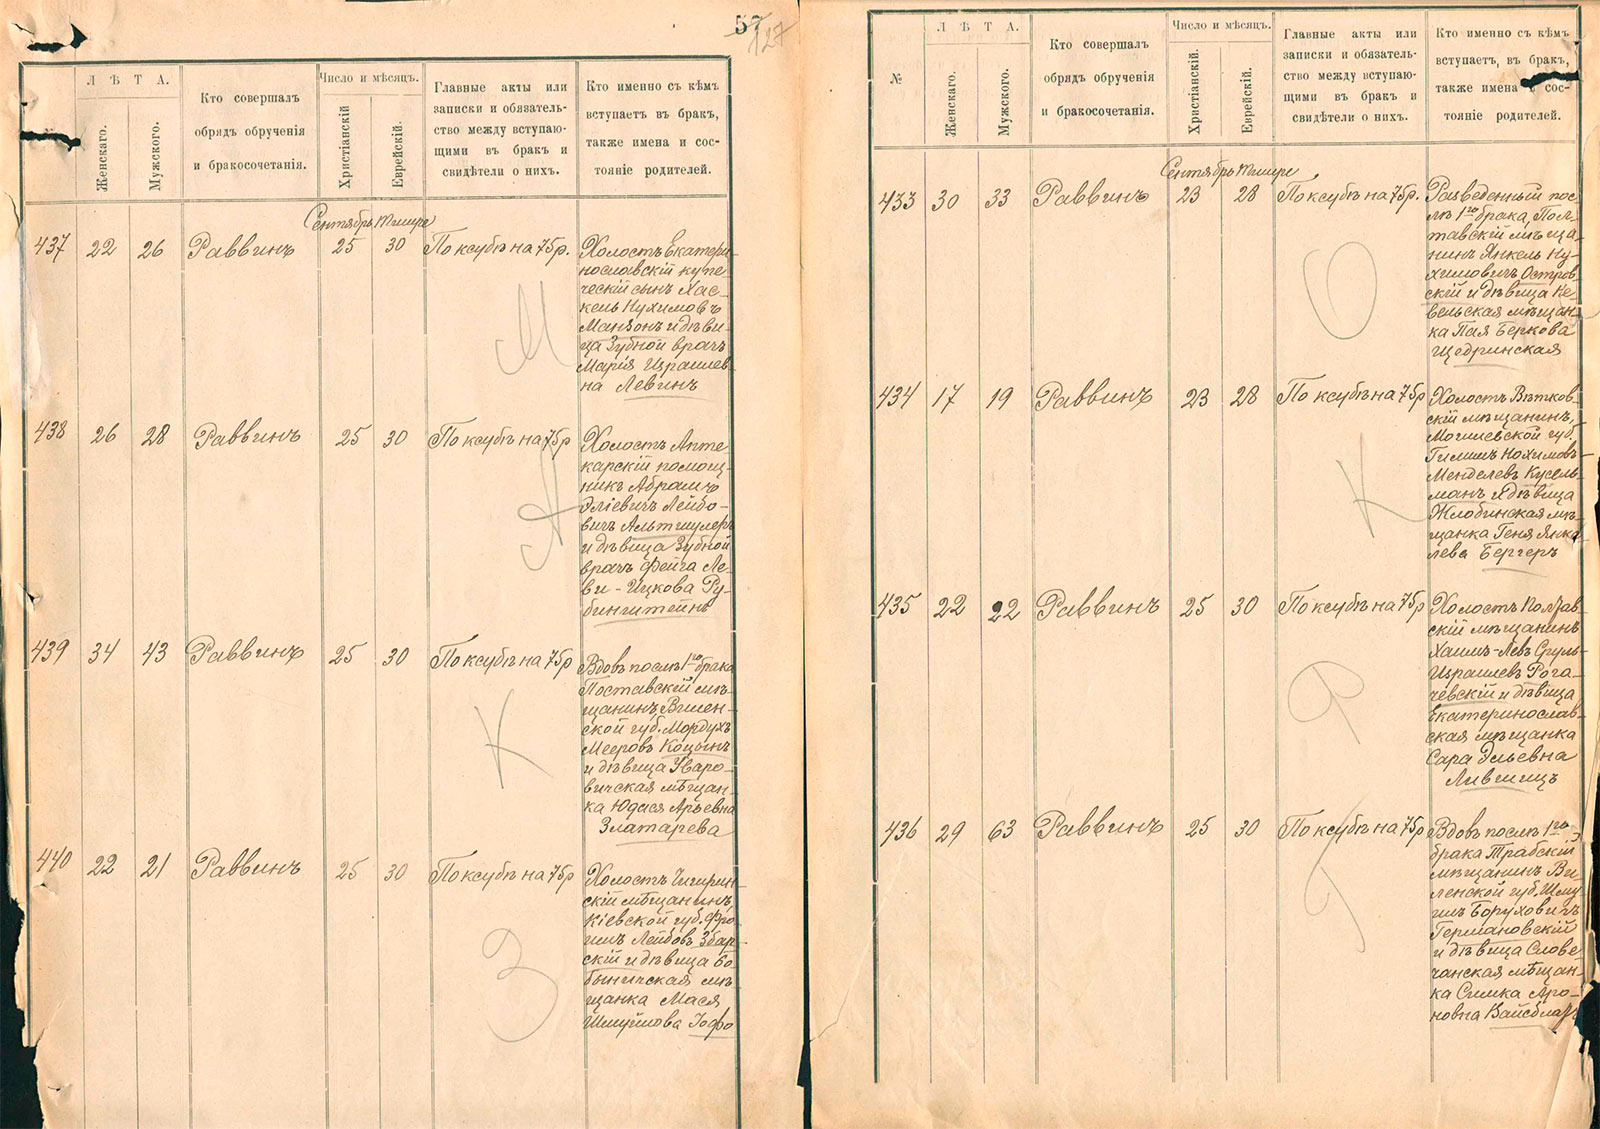 57
127
ЛѢТА.
Женскаго.
Мужского.
Кто совершалъ
обрядъ обрученія
и бракосочетанія.
Число и мѣсяцъ.
Христіанскій
Еврейскій.
Главные акты или
записки и обязатель-
ство между вступаю-
щими въ бракъ и
свидѣтели о нихъ.
Кто именно съ кѣмъ
вступаетъ въ бракъ,
также имена и сос-
тояніе родителей.
Сентябрь Тишре
437 22 26 Раввинъ 25 30 По ксубѣ на 75р.
Холостъ Екатери-
нославскій купе-
ческій сынъ Хас-
кель Нухимовъ
Манзонъ и дѣви-
ца Зубной врачъ
Марія Израилев-
на Левинъ
М
438 26 28 Раввинъ 25 30 По ксубѣ на 75р
Холостъ Апте-
карскій помощ-
никъ Абрамъ
Эліевичъ Лейбо-
вичъ Альтшулеръ
и дѣвица Зубной
врачъ Фейга Ле-
ви-Ицкова Ру-
бинштейнъ
А
439 34 43 Раввинъ 25 30 По ксубѣ на 75р
Вдовъ послѣ 1го брака
Поставскій мѣ-
щанинъ, Вилен-
ской губ. Мордухъ
Мееровъ Коцынъ
и дѣвица Уваро-
вичская мѣщан-
ка Юдася Арьевна
Златарева
К
440 22 21 Раввинъ 25 30 По ксубѣ на 75р
Холостъ Чигирин-
скій мѣщанинъ
Кіевской губ. Фро-
имъ Лейбовъ Збар-
скій и дѣвица Бо-
быничская мѣ-
щанка Мася
Шмуйлова Іоффо
З
№
ЛѢТА.
Женскаго.
Мужского.
Кто совершалъ
обрядъ обрученія
и бракосочетанія.
Число и мѣсяцъ.
Христіанскій.
Еврейскій.
Главные акты или
записки и обязатель-
ство между вступаю-
щими въ бракъ и
свидѣтели о нихъ.
Кто именно съ кѣмъ
вступаетъ, въ бракъ,
также имена и сос-
тояніе родителей.
Сентябрь Тишре
433 30 33 Раввинъ 23 28 По ксубѣ на 75р.
Разведенный пос-
лѣ 1го брака, Пол-
тавскій мѣща-
нинъ Янкель Ну-
химовичъ Остров-
скій и дѣвица Не-
вельская мѣщан-
ка Пая Беркова
Щедринская
О
434 17 19 Раввинъ 23 28 По ксубѣ на 75р
Холостъ Вѣтков-
скій мѣщанинъ,
Могилевской губ.
Гилишъ Нохимовъ-
Менделевъ Кусель-
манъ и дѣвица
Жлобинская мѣ-
щанка Геня Янке-
лева Бергеръ
К
435 22 22 Раввинъ 25 30 По ксубѣ на 75р
Холостъ Полтав-
скій мѣщанинъ
Хаимъ-Левъ Сруль-
Израилевъ Рога-
чевскій и дѣвица
Екатеринослав-
ская мѣщанка
Сара Эльевна
Лившицъ
Р
436 29 63 Раввинъ 25 30 По ксубѣ на 75р
Вдовъ послѣ 1го
брака Трабскій
мѣщанинъ Ви-
ленской губ. Шму-
илъ Боруховичъ
Германовскій
и дѣвица Слове-
чанская мѣщан-
ка Симка Аро-
новна Вайсблатъ
Г